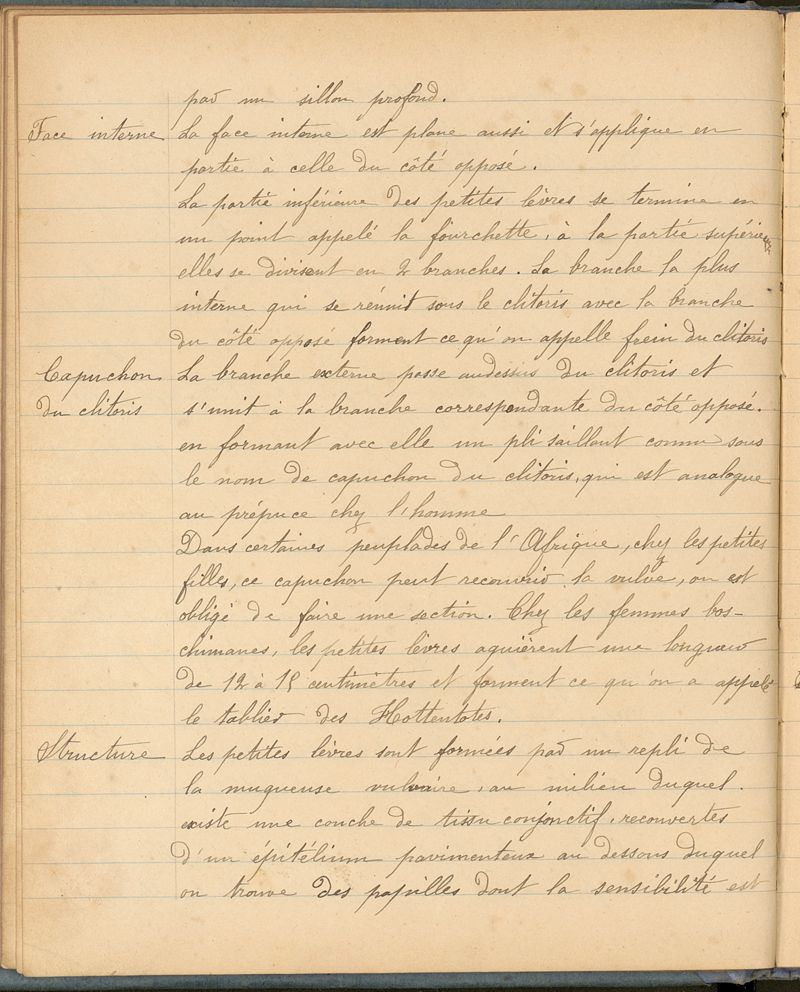 par un sillon profond.
Face interne La face interne est plane aussi et s'applique en
partie à celle du côté opposé.
La partie inférieure des petites lèvres se termine en
un point appelé la fourchette, à la partie supérieure
elles se divisent en 2 branches. La branche la plus
interne qui se réunit sous le clitoris avec la branche
du côté opposé forment ce qu'on appelle frein du clitoris
Capuchon La branche externe passe audessus du clitoris et
du clitoris s'unit à la branche correspondante du côté opposé.
en formant avec elle un pli saillant connu sous
le nom de capuchon du clitoris, qui est analogue
au prépuce chez l'homme
Dans certaines peuplades de l'Afrique, chez les petites
filles, ce capuchon peut recouvrir la vulve, on est
obligé de faire une section. Chez les femmes bos-
chimanes, les petites lèvres aquièrent une longueur
de 12 à 15 centimètres et forment ce qu'on a appelé
le tablier des Hottentotes.
Structure Les petites lèvres sont formées par un repli de
la muqueuse vulvaire, au milieu duquel.
existe une couche de tissu conjonctif, recouvertes
d'un épitélium pavimenteux au dessous duquel
on trouve des papilles dont la sensibilité est